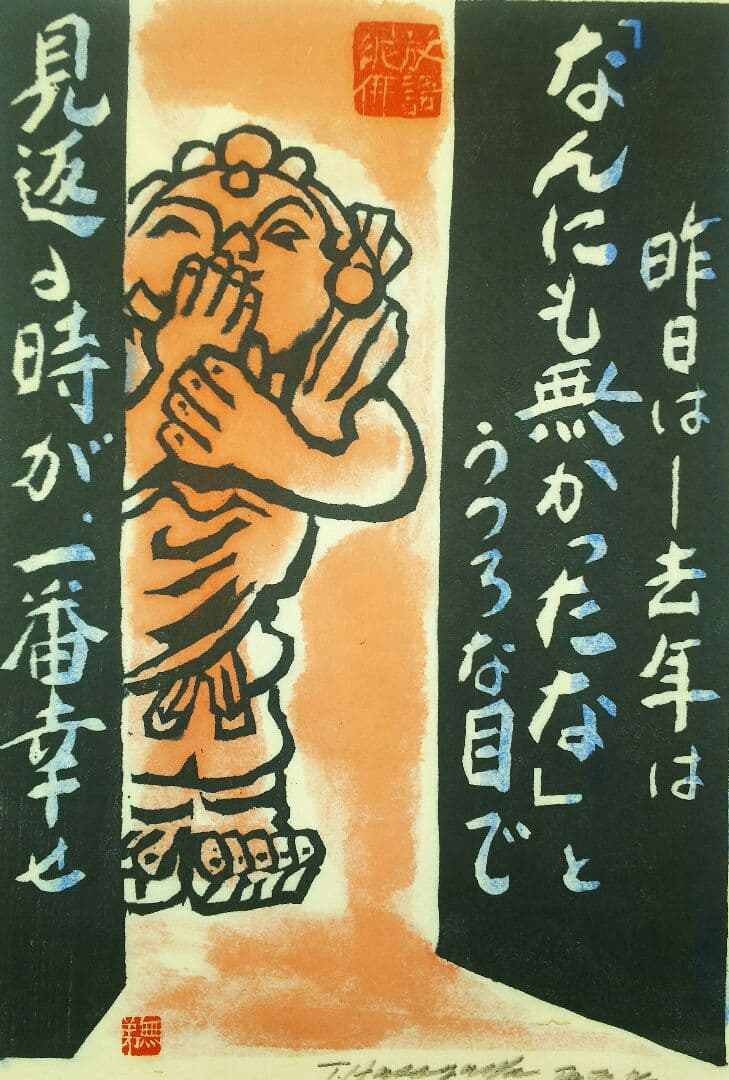 昨日は―去年は
「なんにも無かったな」と
うつろな目で
見返る時が、一番幸せ
放語
T. Hasegawa